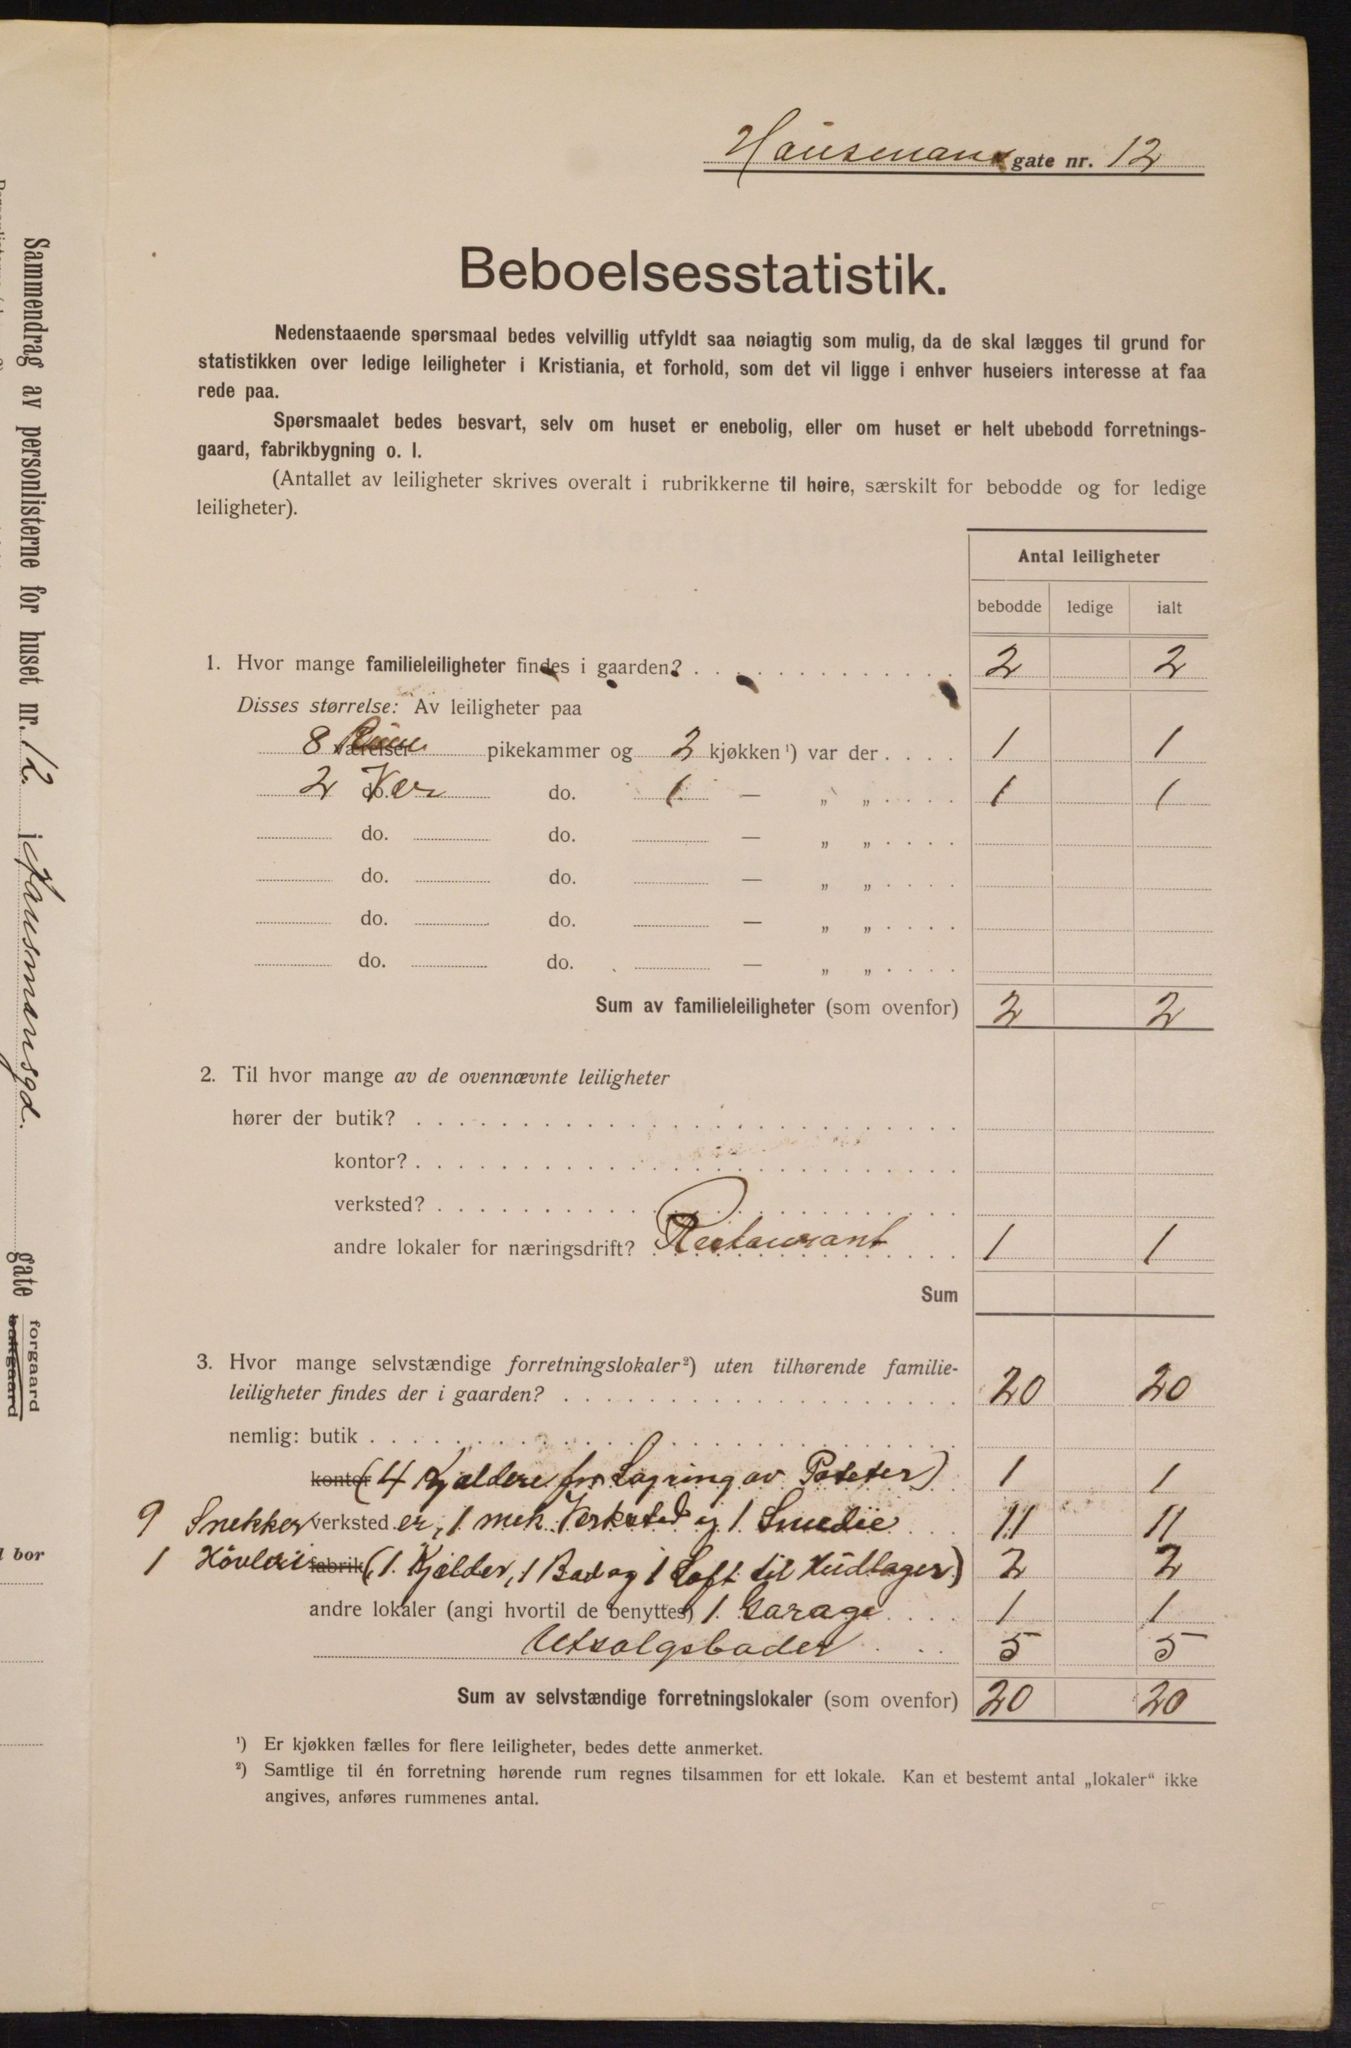 Hausmans gate nr. 12
Beboelsesstatistik.
Nedenstaaende spørsmaal bedes velvillig utfyldt saa nøiagtig som mulig, da de skal lægges til grund for
statistikken over ledige leiligheter i Kristiania, et forhold, som det vil ligge i enhver huseiers interesse at faa
rede paa.
Spørsmaalet bedes besvart, selv om huset er enebolig, eller om huset er helt ubebodd forretnings-
gaard, fabrikbygning o. l.
(Antallet av leiligheter skrives overalt i rubrikkerne til høire, særskilt for bebodde og for ledige
leiligheter).
Antal leiligheter
bebodde ledige ialt
1. Hvor mange familieleiligheter findes i gaarden? 2 2
Disses størrelse: Av leiligheter paa
8 værelser pikekammer og 2 kjøkken ¹) var der 1 1
2 do. Vær do. 1 — „ „ 1 1
do. do. — „ „
do. do. — „ „
do. do. — „ „
do. do. — „ „
Sum av familieleiligheter (som ovenfor) 2 2
2. Til hvor mange av de ovennævnte leiligheter
hører der butik?
kontor?
verksted?
andre lokaler for næringsdrift? Restaurant 1 1
Sum
3. Hvor mange selvstændige forretningslokaler²) uten tilhørende familie-
leiligheter findes der i gaarden? 20 20
nemlig: butik
kontor (4 Kjældere for Lagring av Poteter) 1 1
9 Snekker verksted er, 1 mek Verksted og 1 Smedie 11 11
1 Høvleri fabrik (1 Kjælder, 1 Bod og 1 Loft til Hudlager) 2 2
andre lokaler (angi hvortil de benyttes) 1 Garage 1 1
Utsalgsboder 5 5
Sum av selvstændige forretningslokaler (som ovenfor) 20 20
¹) Er kjøkken fælles for flere leiligheter, bedes dette anmerket.
²) Samtlige til én forretning hørende rum regnes tilsammen for ett lokale. Kan et bestemt antal „lokaler“ ikke
angives, anføres rummenes antal.
Sammendrag av personlisterne for huset nr. 12. i Hausmansgd. gate forgaard
bakgaard
bor